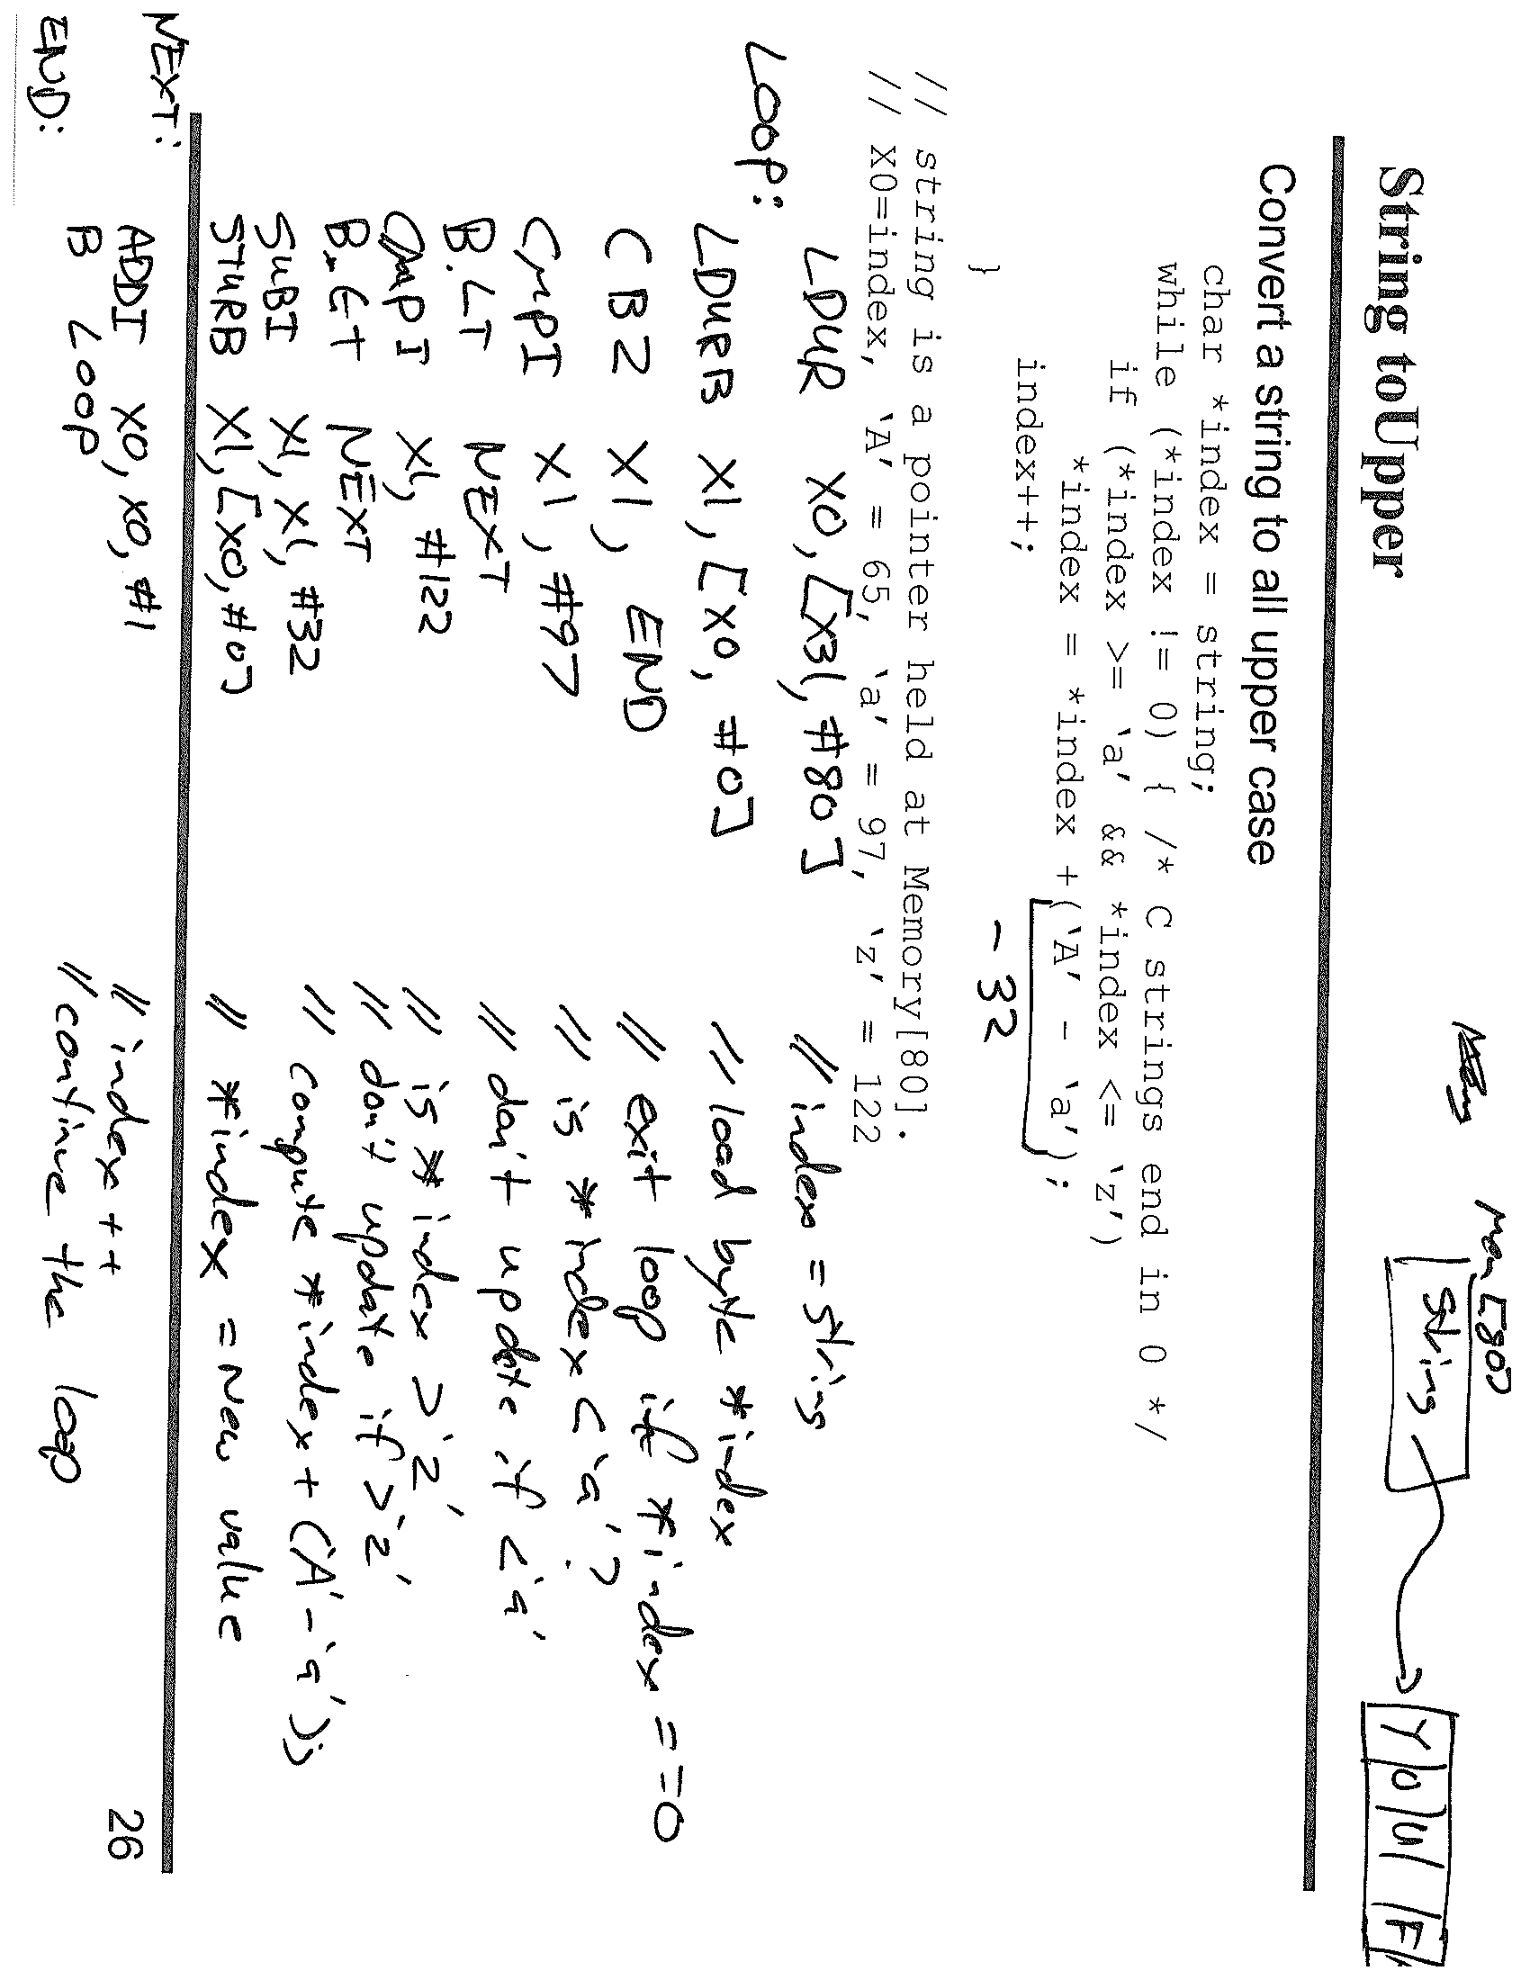 String toUpper
Mem[80]
String
Y O U F
Convert a string to all upper case
char *index = string;
while (*index != 0) { /* C strings end in 0 */
if (*index >= 'a' && *index <= 'z')
*index = *index +('A' - 'a');
- 32
index++;
}
// string is a pointer held at Memory[80].
// X0=index, 'A' = 65, 'a' = 97, 'z' = 122
LDUR X0, [X31, #80] // index = string
LOOP: LDURB X1, [X0, #0] // load byte *index
CBZ X1, END // exit loop if *index ==0
CMPI X1, #97 // is *index < 'a'?
B.LT NEXT // don't update if < 'a'
CMPI X1, #122 // is *index > 'z'
B.GT NEXT // don't update if > 'z'
SUBI X1, X1, #32 // compute *index + ('A' - 'a');
STURB X1, [X0, #0] // *index = New value
NEXT: ADDI X0, X0, #1 // index ++
B LOOP // continue the loop
END:
26